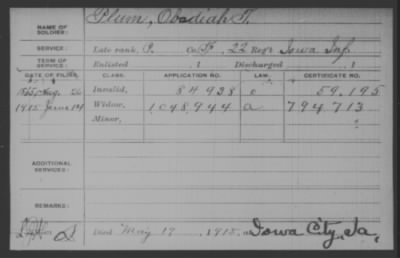 NAME OF SOLDIER: Plum, Obadiah T.
SERVICE: Late rank, P. Co. F, 22 Reg't Iowa Inf.
TERM OF SERVICE: Enlisted , 1 Discharged , 1
DATE OF FILING. CLASS. APPLICATION NO. LAW. CERTIFICATE NO.
Aug. 26 Invalid, 84938 59,195
1915 June 14 Widow, 1048944 a 794713
Minor,
ADDITIONAL SERVICES:
REMARKS:
Died May 17, 1915, at Iowa City, Ia.